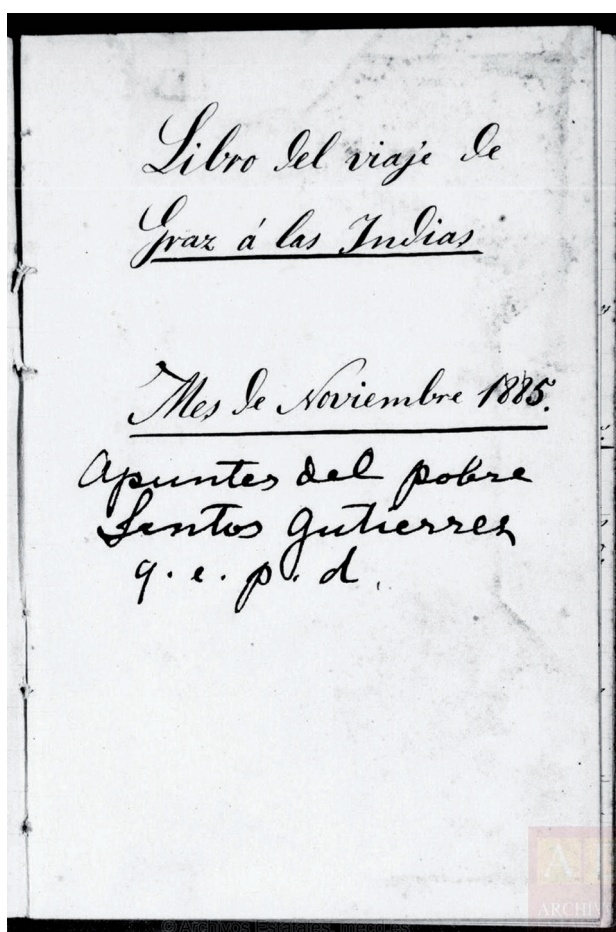 Libro del viaje de
Graz á las Indias
Mes de Noviembre 1885.
Apuntes del pobre
Santos Gutierrez
q. e. p. d.
ARCHIV
©Archivos Estatales, mecd.es